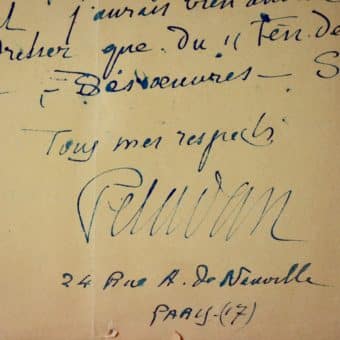 j'aurais bien
que du "Fin de
- Désoeuvrés -
Tous mes respects
Peladan
24 Rue A. de Neuville
PARIS-(17)